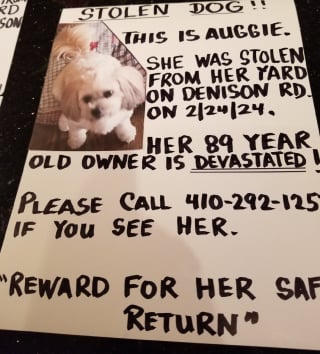 RD
SON
STOLEN DOG!!
THIS IS AUGGIE.
SHE WAS STOLEN
FROM HER YARD
ON DENISON RD.
ON 2/24/24.
HER 89 YEAR
OLD OWNER IS DEVASTATED!
PLEASE CALL 410-292-125
IF YOU SEE HER.
"REWARD FOR HER SAF
RETURN"